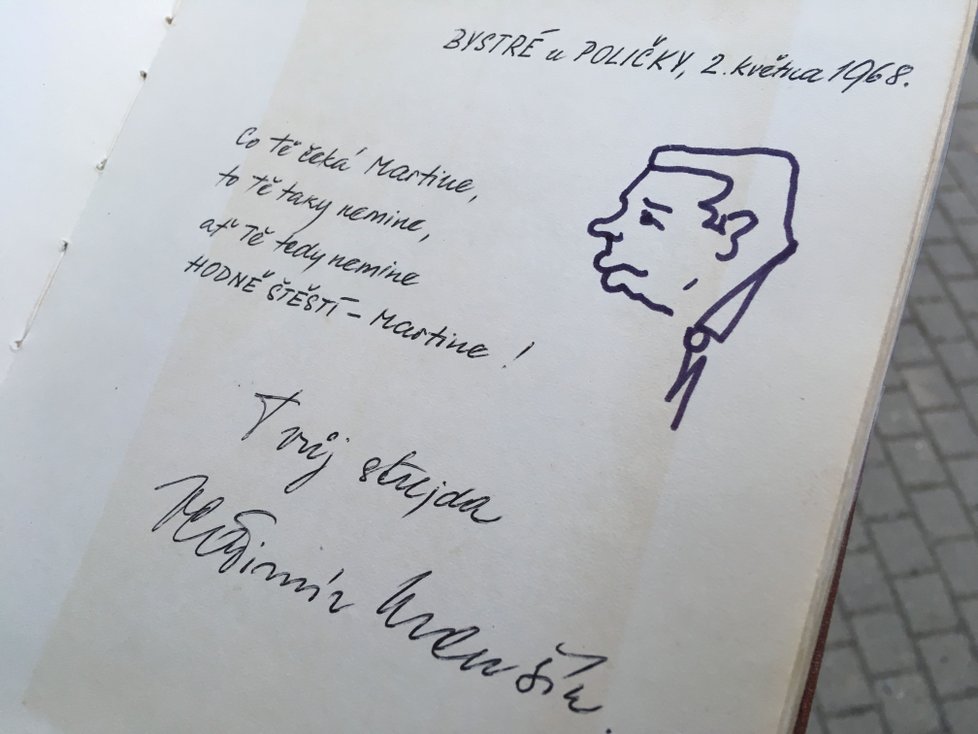 BYSTRÉ u POLIČKY, 2. května 1968.
Co tě čeká Martine,
to tě taky nemine,
ať Tě tedy nemine
HODNĚ ŠTĚSTÍ - Martine!
Tvůj strejda
Vladimír Menšík.